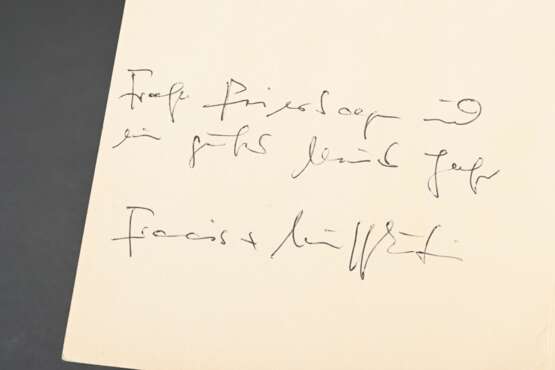 Frohe Feiertage und
ein gutes Neues Jahr
Francis +